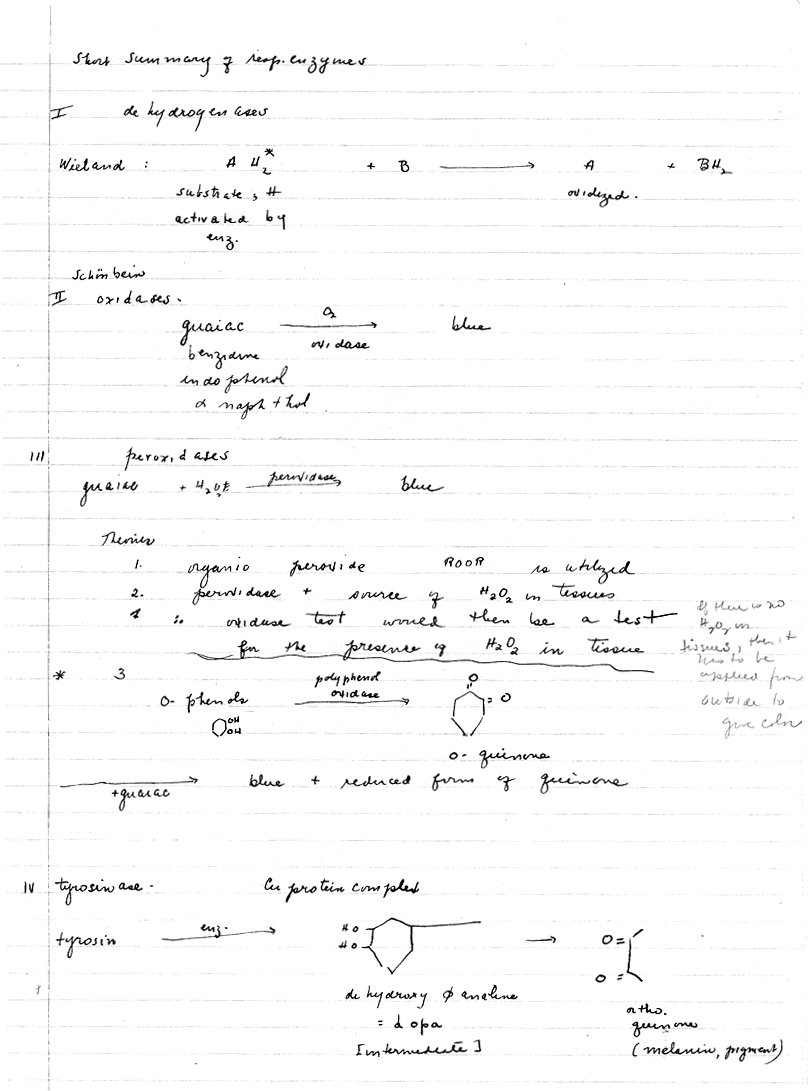 Short Summary of resp. enzymes
I dehydrogenases
Wieland : A H2* + B → A + BH2
substrate, H oxidized.
activated by
enz.
Schönbein
II oxidases.
guaiac O2 → oxidase blue
benzidine
indophenol
α naphthol
III peroxidases
guaiac + H2O2 peroxidase → blue
Theories
1. organic peroxide ROOR is utilized
2. peroxidase + source of H2O2 in tissues
∴ oxidase test would then be a test
for the presence of H2O2 in tissue
If there is no
H2O2 in
tissues, then it
has to be
applied from
outside to
give color
* 3
O- phenols OH OH polyphenol oxidase → O = O
o- quinone
+guaiac → blue + reduced form of quinone
IV tyrosinase. Cu protein complex
tyrosin enz. → HO HO → O= O=
dehydroxy φ analine
= dopa
[intermediate]
ortho.
quinone
(melanin, pigment)